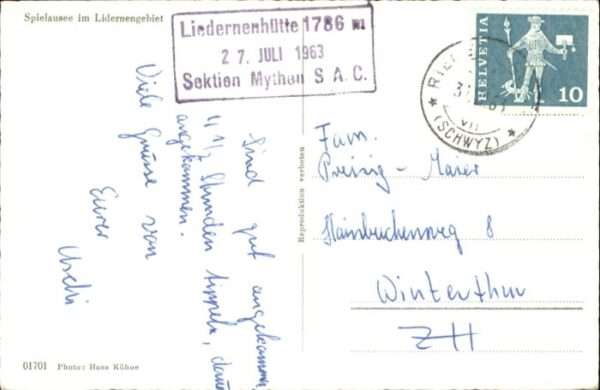 Spielausee im Lidernengebiet
Liedernenhütte 1786 m
27. JULI 1963
Sektion Mythen S A C.
HELVETIA
10
(SCHWYZ)
Sind gut angekommen
4 1/2 Stunden tippeln, dann
angekommen.
Viele Grüsse von
Eurer
Uschi
Reproduktion verboten
Fam.
Preisig - Maier
Hainbuchenweg 8
Winterthur
ZH
01701 Photo: Hans Kühne